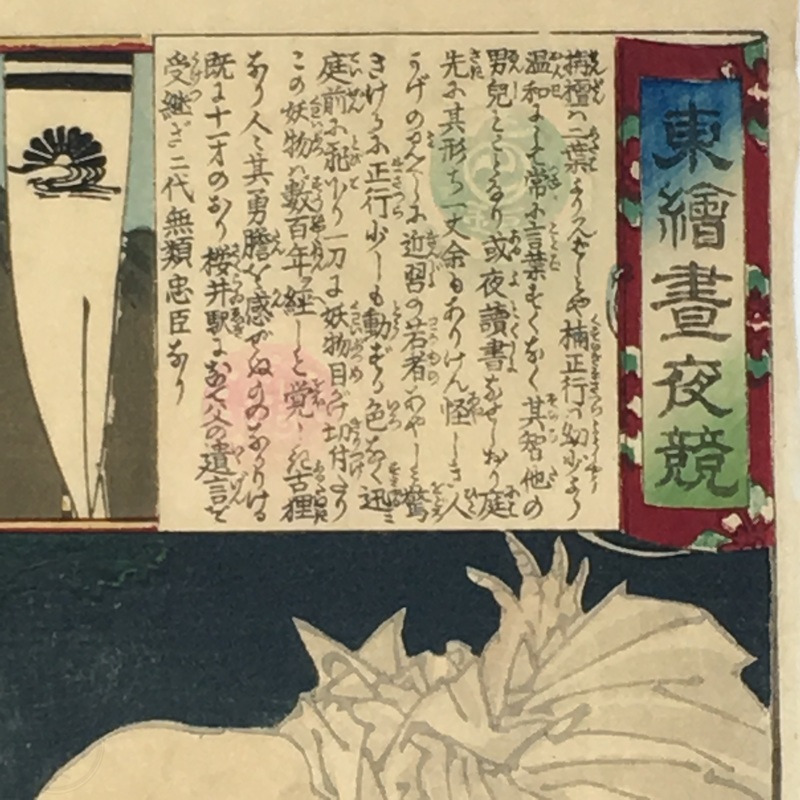 東繪晝夜競
栴檀ハ二葉よりかんばしとや楠正行ハ幼少より
温和にして常に言葉すくなく其智他の
男児とことなり或夜讀書なせしおり庭
先に其形ち一丈余もありけん怪しき人
かげの
に近習の若者あやしと驚
きけるに正行少しも動ぜず色なく迅
庭前に飛下り一刀に妖物目がけ切付たり
この妖物ハ數百年経しと覚しき古狸
なり人々其勇膽を感ぜぬものなかりける
既に十一才のおり桜井駅にて父の遺言を
受継ぎ二代無類忠臣なり